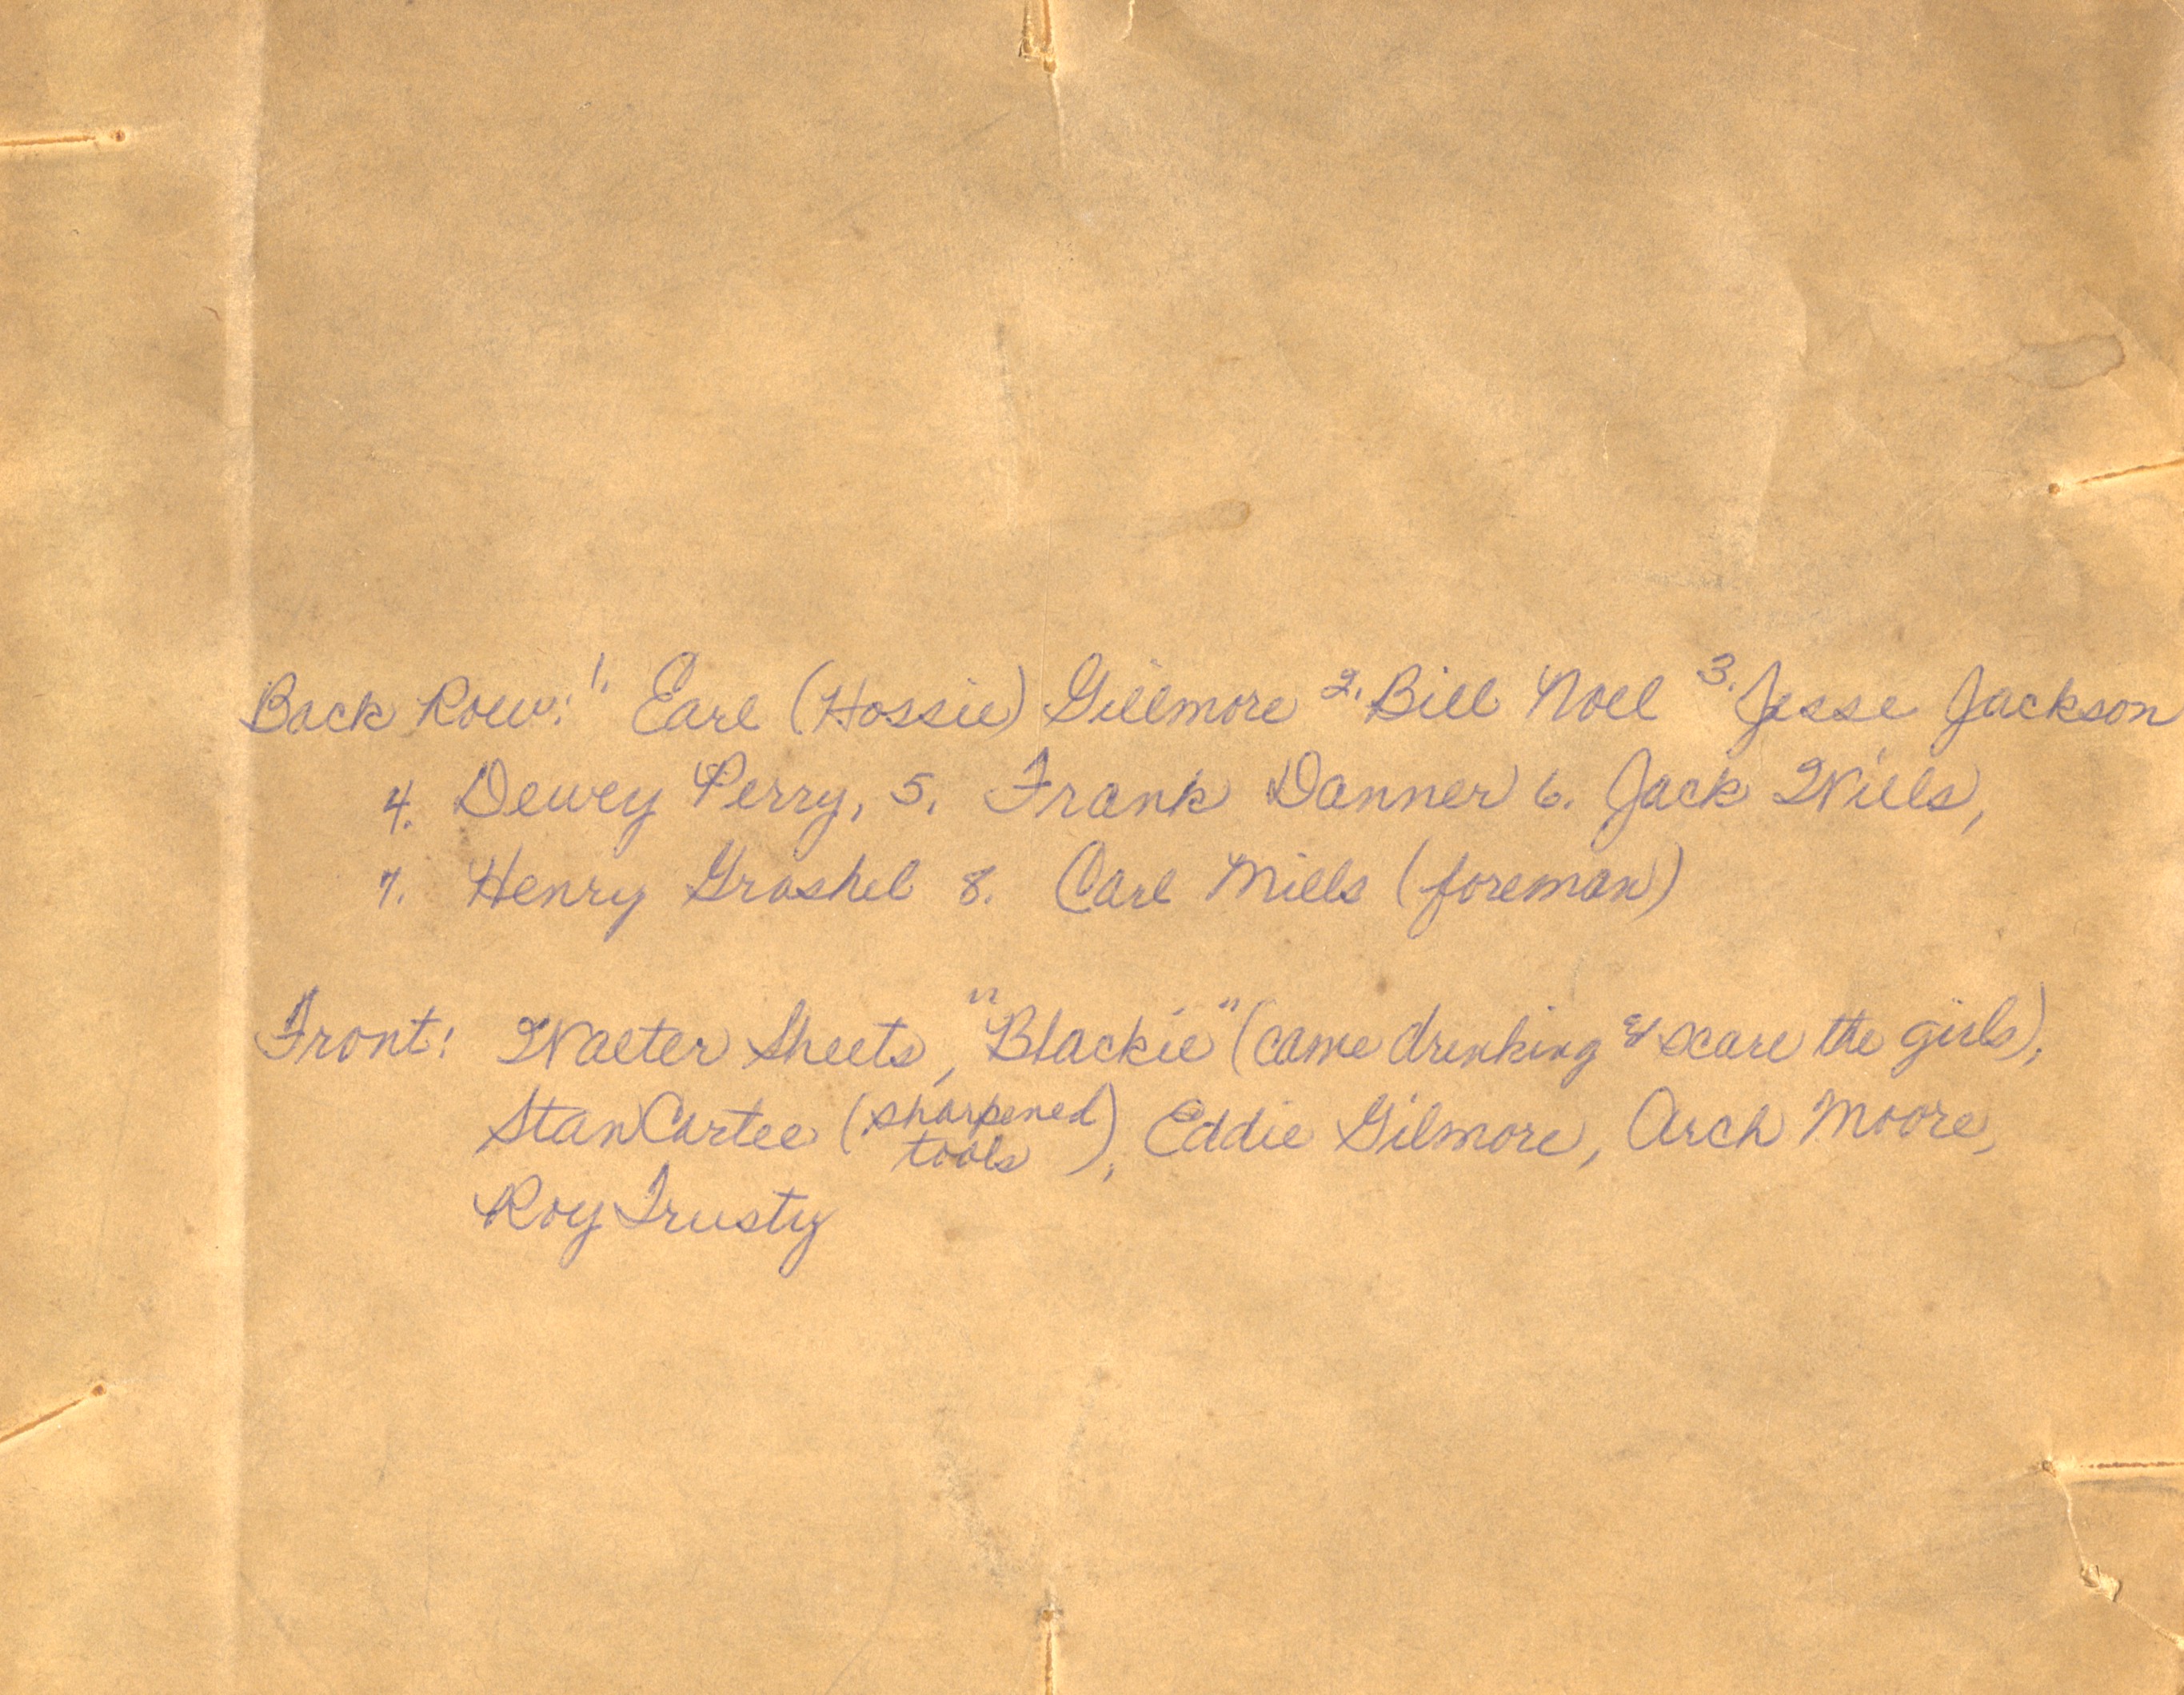 Back Row: 1. Earl (Hossie) Gillmore 2. Bill Noel 3. Jesse Jackson
4. Dewey Perry, 5. Frank Danner 6. Jack Wills,
7. Henry Groshel 8. Carl Mills (foreman)
Front: Walter Sheets, "Blackie" (came drinking & scare the girls),
Stan Cartee (sharpened tools), Eddie Gilmore, Arch Moore,
Roy Trusty